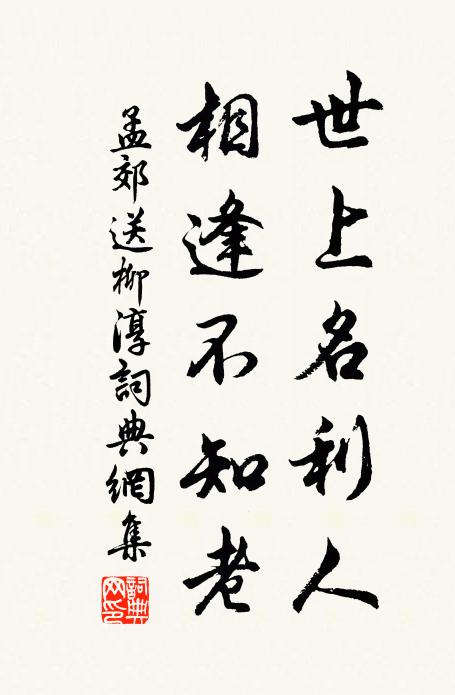 世上名利人
相逢不知老
孟郊送柳淳詞典網集
詞典
网印